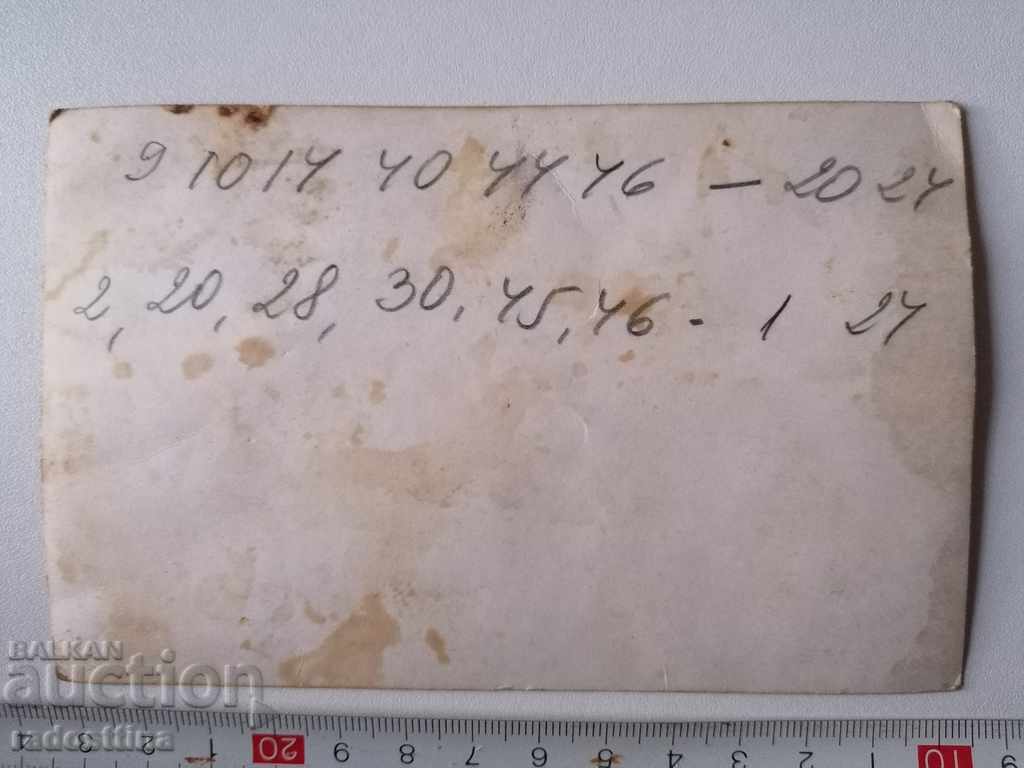 9 10 14 40 44 46 — 20 24
2, 20, 28, 30, 45, 46 - 1 24
BALKAN
auction
radosttira
4 3 2 1 20 9 8 7 6 5 4 3 2 1 10 9